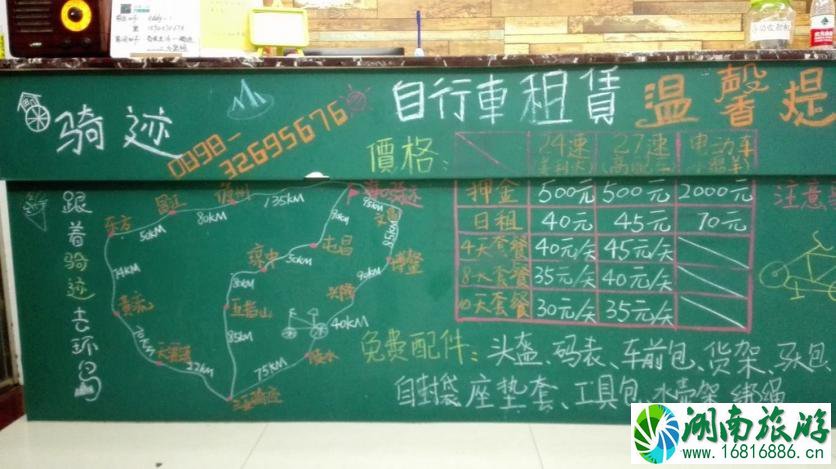 骑迹
0898-32695676
自行車租賃
温馨提
跟着骑迹去环岛
價格:
24速 27速 电动车
押金 500元 500元 2000元
日租 40元 45元 70元
4天套餐 40元/天 45元/天
8天套餐 35元/天 40元/天
10天套餐 30元/天 35元/天
注意
免费配件: 头盔、码表、车前包、货架、驮包
自封袋、座垫套、工具包、水壶架、绑绳
东方
50KM
昌江
80KM
儋州
135KM
海口骑迹
95KM
文昌
博鳌
90KM
兴隆
40KM
陵水
75KM
三亚骑迹
屯昌
50KM
琼中
80KM
五指山
85KM
黄流
天涯镇
22KM
湖南旅游
www.16816886.cn